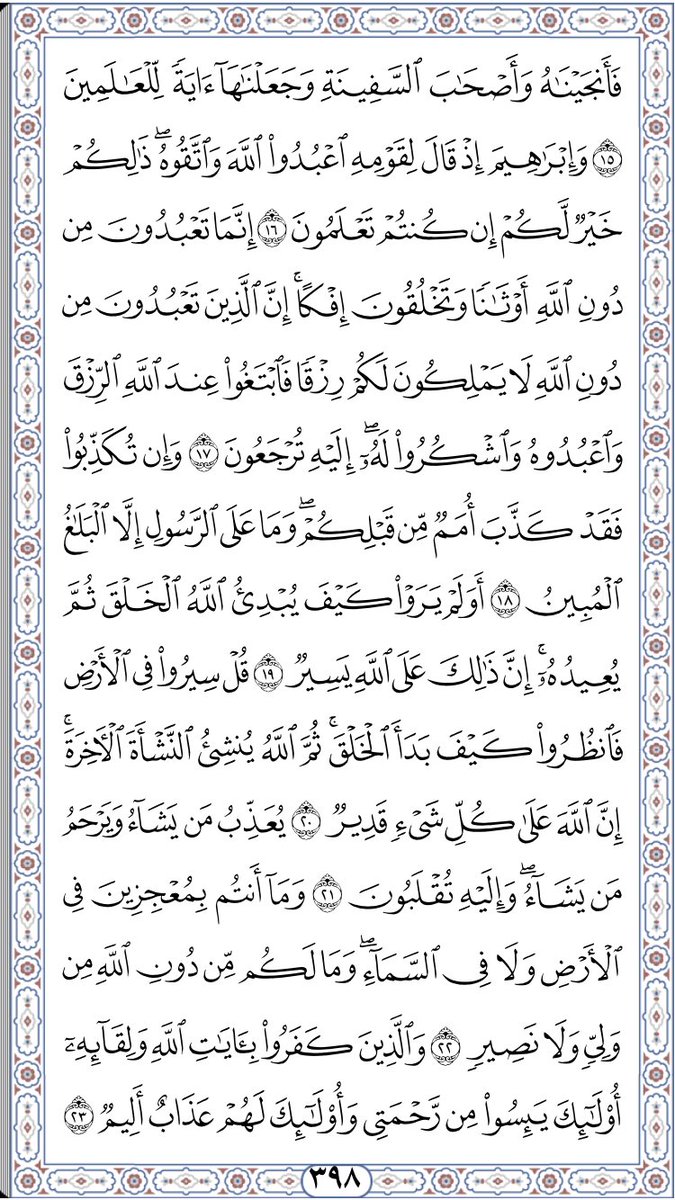 فَأَنجَيْنَٰهُ وَأَصْحَٰبَ ٱلسَّفِينَةِ وَجَعَلْنَٰهَآ ءَايَةً لِّلْعَٰلَمِينَ
۝١٥ وَإِبْرَٰهِيمَ إِذْ قَالَ لِقَوْمِهِ ٱعْبُدُوا۟ ٱللَّهَ وَٱتَّقُوهُ ۖ ذَٰلِكُمْ
خَيْرٌ لَّكُمْ إِن كُنتُمْ تَعْلَمُونَ ۝١٦ إِنَّمَا تَعْبُدُونَ مِن
دُونِ ٱللَّهِ أَوْثَٰنًا وَتَخْلُقُونَ إِفْكًا ۚ إِنَّ ٱلَّذِينَ تَعْبُدُونَ مِن
دُونِ ٱللَّهِ لَا يَمْلِكُونَ لَكُمْ رِزْقًا فَٱبْتَغُوا۟ عِندَ ٱللَّهِ ٱلرِّزْقَ
وَٱعْبُدُوهُ وَٱشْكُرُوا۟ لَهُۥٓ ۖ إِلَيْهِ تُرْجَعُونَ ۝١٧ وَإِن تُكَذِّبُوا۟
فَقَدْ كَذَّبَ أُمَمٌ مِّن قَبْلِكُمْ ۖ وَمَا عَلَى ٱلرَّسُولِ إِلَّا ٱلْبَلَٰغُ
ٱلْمُبِينُ ۝١٨ أَوَلَمْ يَرَوْا۟ كَيْفَ يُبْدِئُ ٱللَّهُ ٱلْخَلْقَ ثُمَّ
يُعِيدُهُۥٓ ۚ إِنَّ ذَٰلِكَ عَلَى ٱللَّهِ يَسِيرٌ ۝١٩ قُلْ سِيرُوا۟ فِى ٱلْأَرْضِ
فَٱنظُرُوا۟ كَيْفَ بَدَأَ ٱلْخَلْقَ ۚ ثُمَّ ٱللَّهُ يُنشِئُ ٱلنَّشْأَةَ ٱلْءَاخِرَةَ ۚ
إِنَّ ٱللَّهَ عَلَىٰ كُلِّ شَىْءٍ قَدِيرٌ ۝٢٠ يُعَذِّبُ مَن يَشَآءُ وَيَرْحَمُ
مَن يَشَآءُ ۖ وَإِلَيْهِ تُقْلَبُونَ ۝٢١ وَمَآ أَنتُم بِمُعْجِزِينَ فِى
ٱلْأَرْضِ وَلَا فِى ٱلسَّمَآءِ ۖ وَمَا لَكُم مِّن دُونِ ٱللَّهِ مِن
وَلِىٍّ وَلَا نَصِيرٍ ۝٢٢ وَٱلَّذِينَ كَفَرُوا۟ بِـَٔايَٰتِ ٱللَّهِ وَلِقَآئِهِۦٓ
أُو۟لَٰٓئِكَ يَئِسُوا۟ مِن رَّحْمَتِى وَأُو۟لَٰٓئِكَ لَهُمْ عَذَابٌ أَلِيمٌ ۝٢٣
٣٩٨